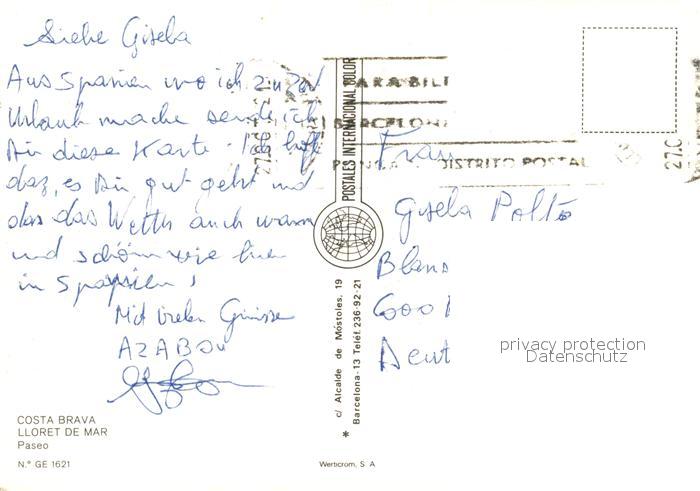 Liebe Gisela
Aus Spanien wo ich zurzeit
Urlaub mache sende ich
Dir diese Karte. Ich hoffe
das, es Dir gut geht und
das das Wetter auch warm
und schön wie hier
in Spanien!
Mit vielen Grüsse
AZABOU
COSTA BRAVA
LLORET DE MAR
Paseo
N.° GE 1621
POSTALES INTERNACIONAL COLOR
c/ Alcalde de Móstoles, 19
Barcelona-13 Teléf. 236-92-21
*
Wertcrom, S A
PARA BILI
BARCELON
PONGA DISTRITO POSTAL
27.C
Frau
Gisela
Blans
6001
Deut
privacy protection
Datenschutz